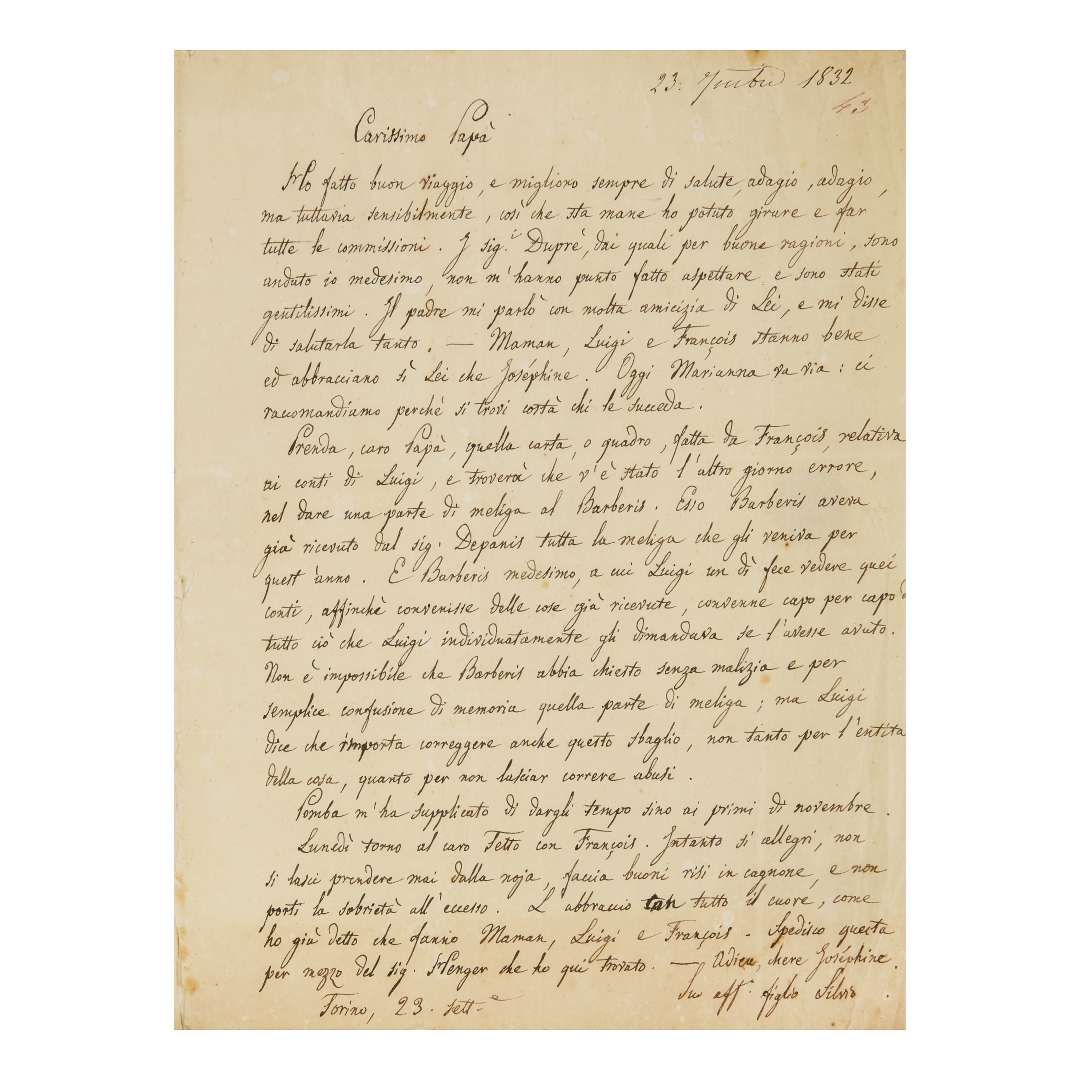 23. 7mbre 1832
43
Carissimo Papà
Ho fatto buon viaggio, e miglioro sempre di salute, adagio, adagio,
ma tuttavia sensibilmente, così che sta mane ho potuto girare e far
tutte le commissioni. I sig.i Duprè, dai quali per buone ragioni, sono
andato io medesimo, non m'hanno punto fatto aspettare e sono stati
gentilissimi. Il padre mi parlò con molta amicizia di Lei, e mi disse
di salutarla tanto. — Maman, Luigi e François stanno bene
ed abbracciano sì Lei che Joséphine. Oggi Marianna va via: ci
raccomandiamo perché si trovi costà chi le succeda.
Prenda, caro Papà, quella carta, o quadro, fatta da François, relativa
ai conti di Luigi, e troverà che v'è stato l'altro giorno errore,
nel dare una parte di meliga al Barberis. Esso Barberis aveva
già ricevuto dal sig. Depanis tutta la meliga che gli veniva per
quest'anno. E Barberis medesimo, a cui Luigi un dì fece vedere quei
conti, affinchè convenisse delle cose già ricevute, convenne capo per capo d
tutto ciò che Luigi individuatamente gli dimandava se l'avesse avuto.
Non è impossibile che Barberis abbia chiesto senza malizia e per
semplice confusione di memoria quella parte di meliga; ma Luigi
dice che importa correggere anche questo sbaglio, non tanto per l'entità
della cosa, quanto per non lasciar correre abusi.
Pomba m'ha supplicato di dargli tempo sino ai primi di novembre.
Lunedì torno al caro Tetto con François. Intanto si allegri, non
si lasci prendere mai dalla noja, faccia buoni risi in cagnone, e non
porti la sobrietà all'eccesso. L'abbraccio con tutto il cuore, come
ho già detto che fanno Maman, Luigi e François - Spedisco questa
per mezzo del sig. Henger che ho qui trovato. — Adieu, chere Joséphine.
Suo aff.o figlio Silvio.
Torino, 23. sett.e